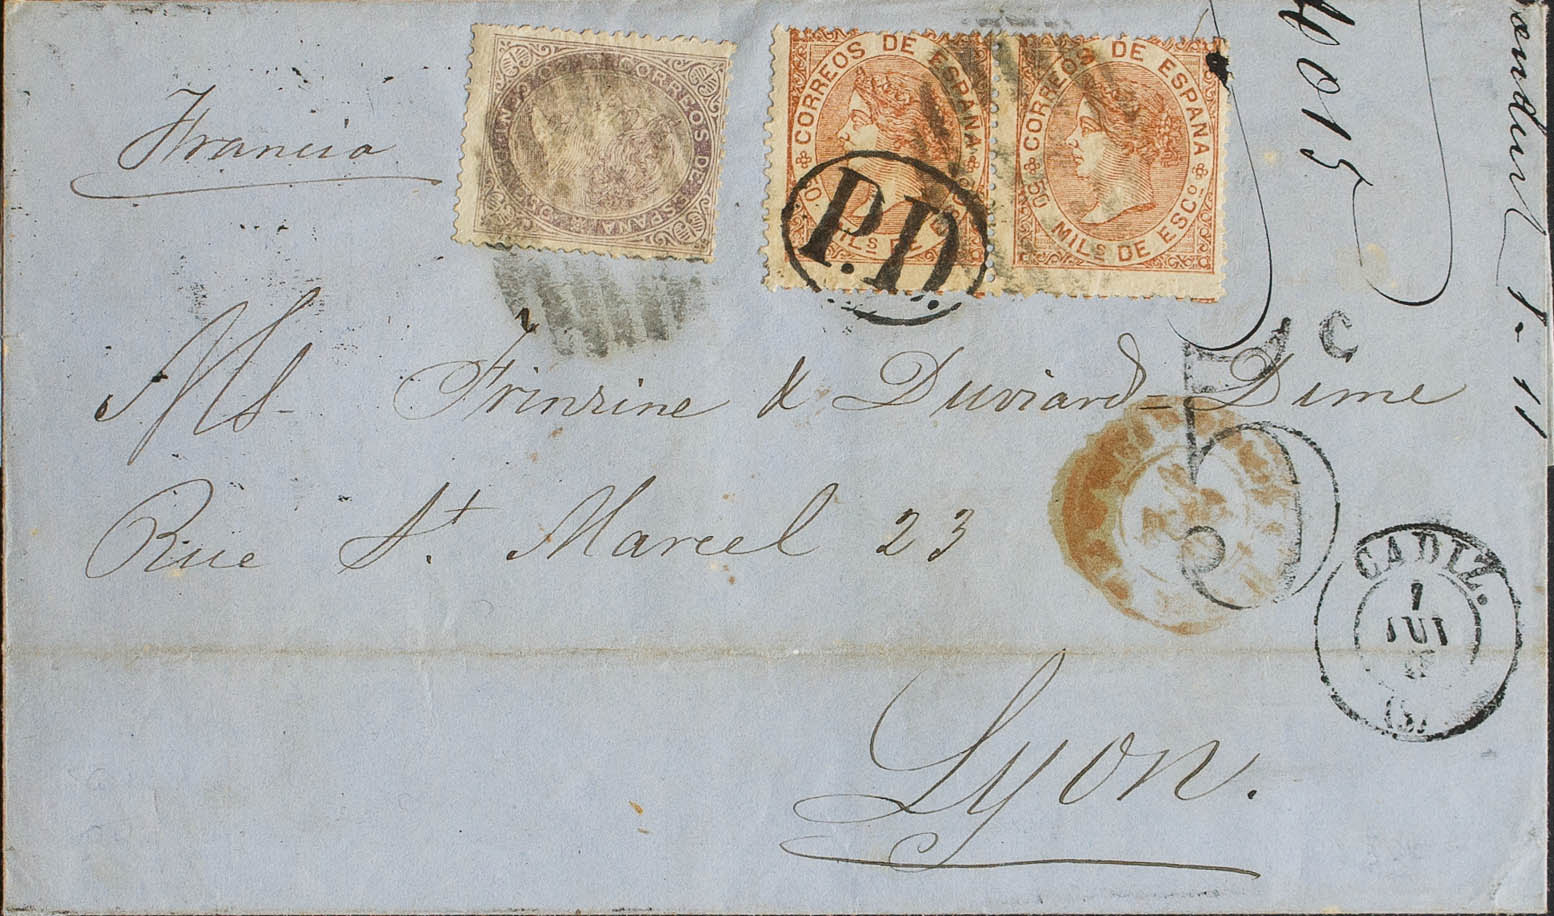 Francia
CORREOS DE ESPAÑA
CORREOS DE ESPAÑA
50 MILS DE ESCO
CORREOS DE ESPAÑA
P.D.
4015
1-11
Ms Frinzine & Duviard-Dime
Rue St. Marcel 23
Lyon.
5
CADIZ.
1
JUI
(5)